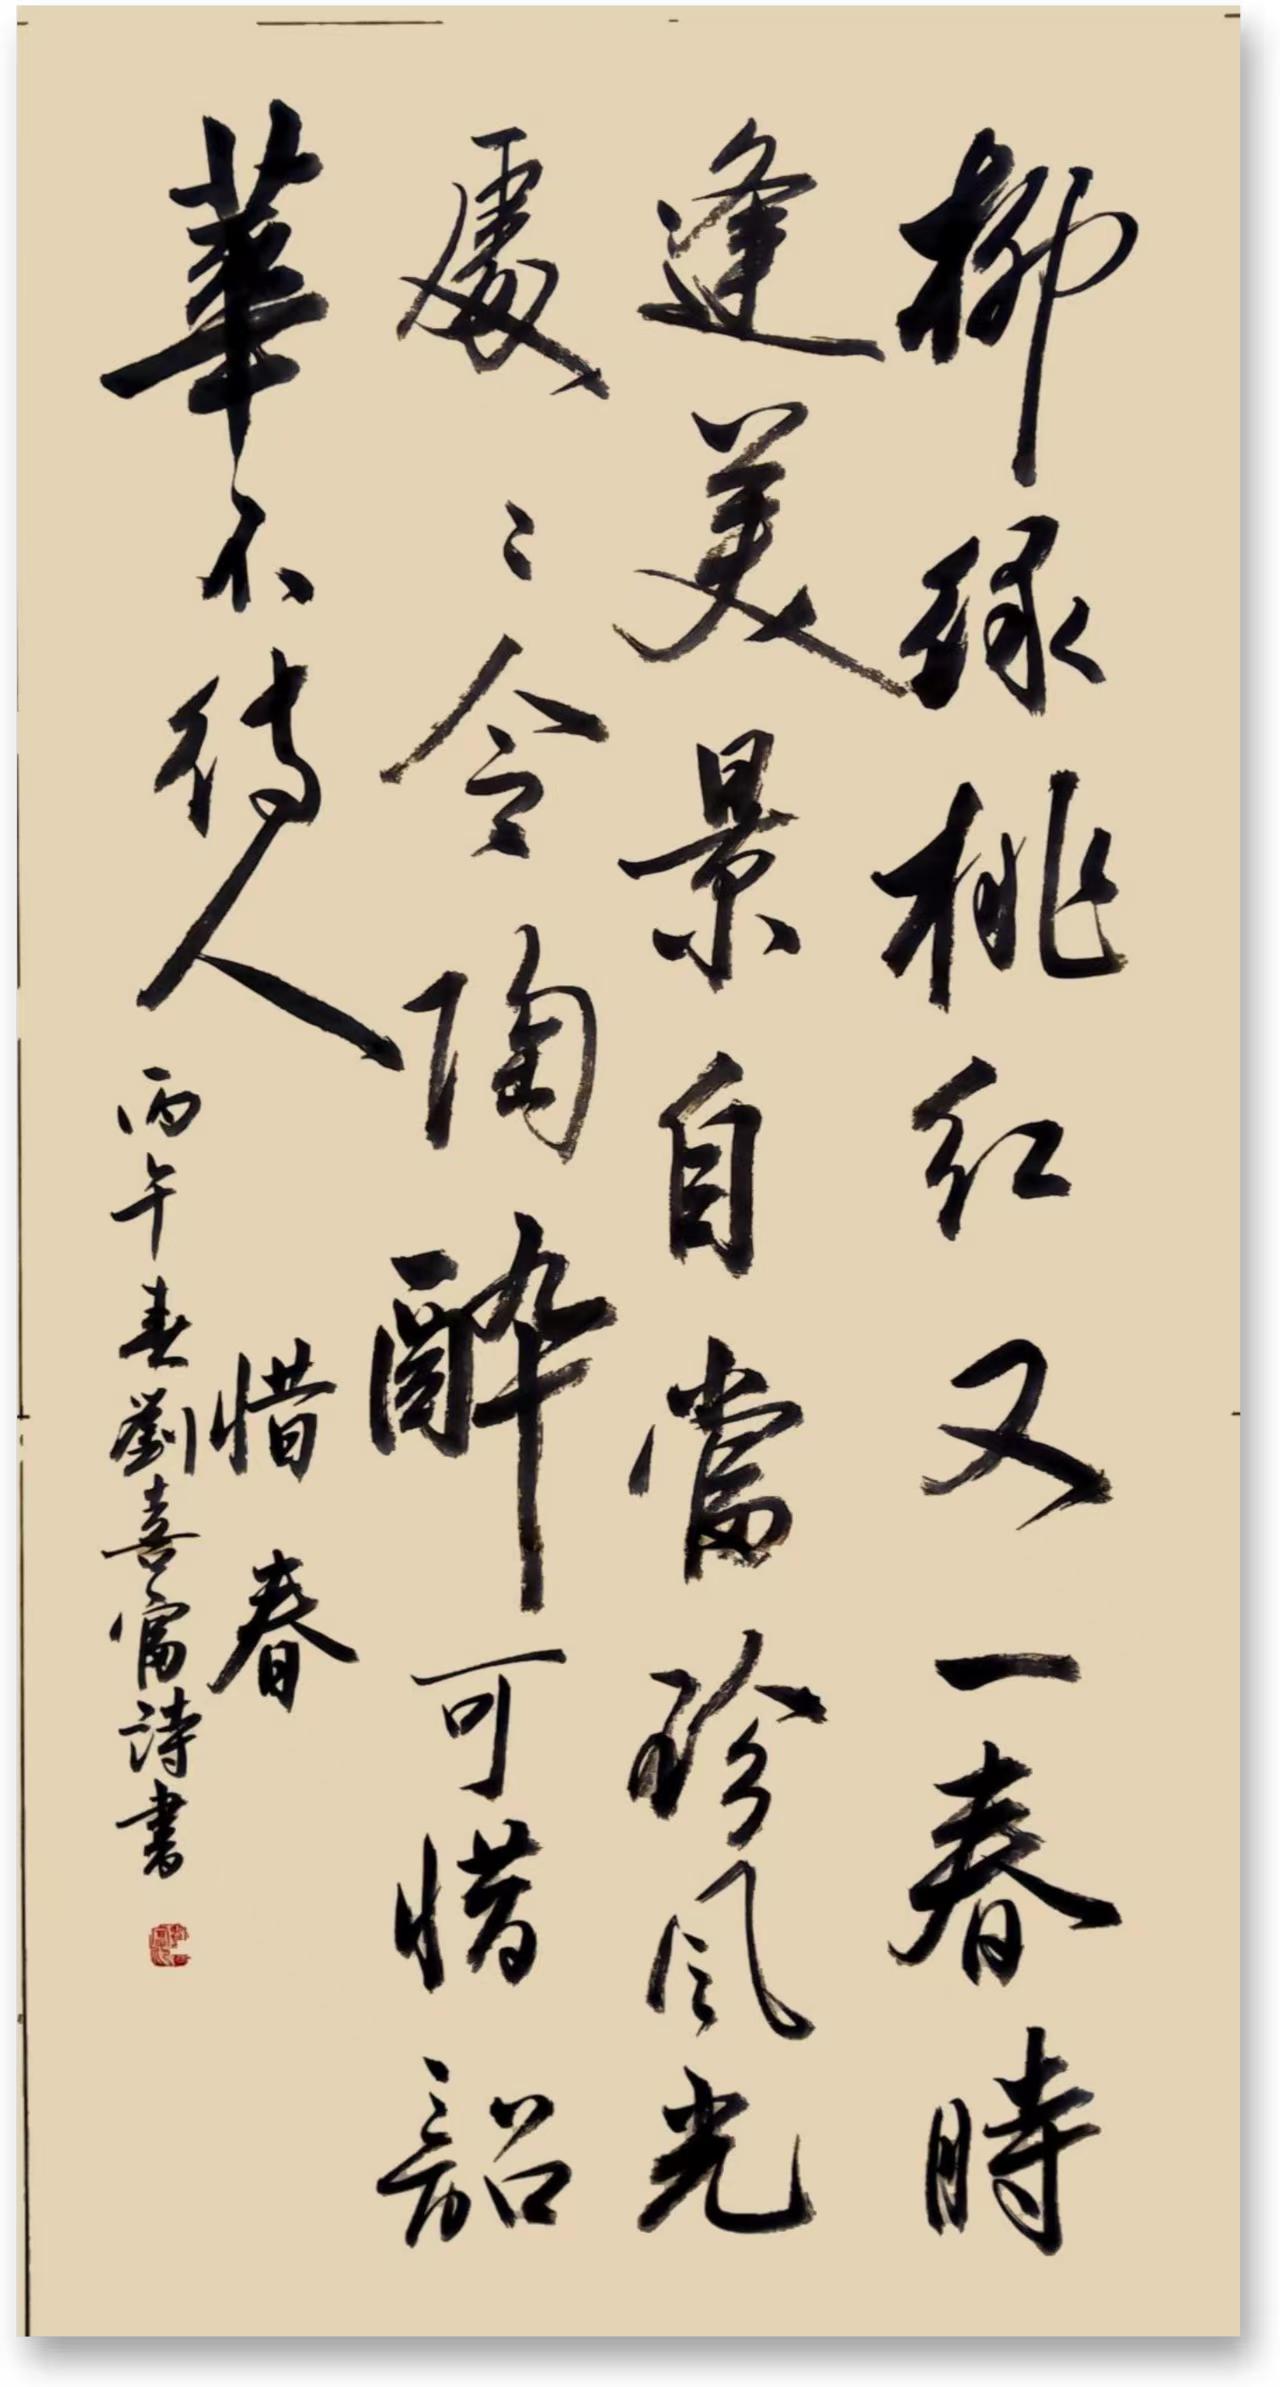 柳綠桃紅又一春時
逢美景自當珍風光
處〻令陶醉可惜韶
華不待人
惜春
丙午春劉喜富詩書